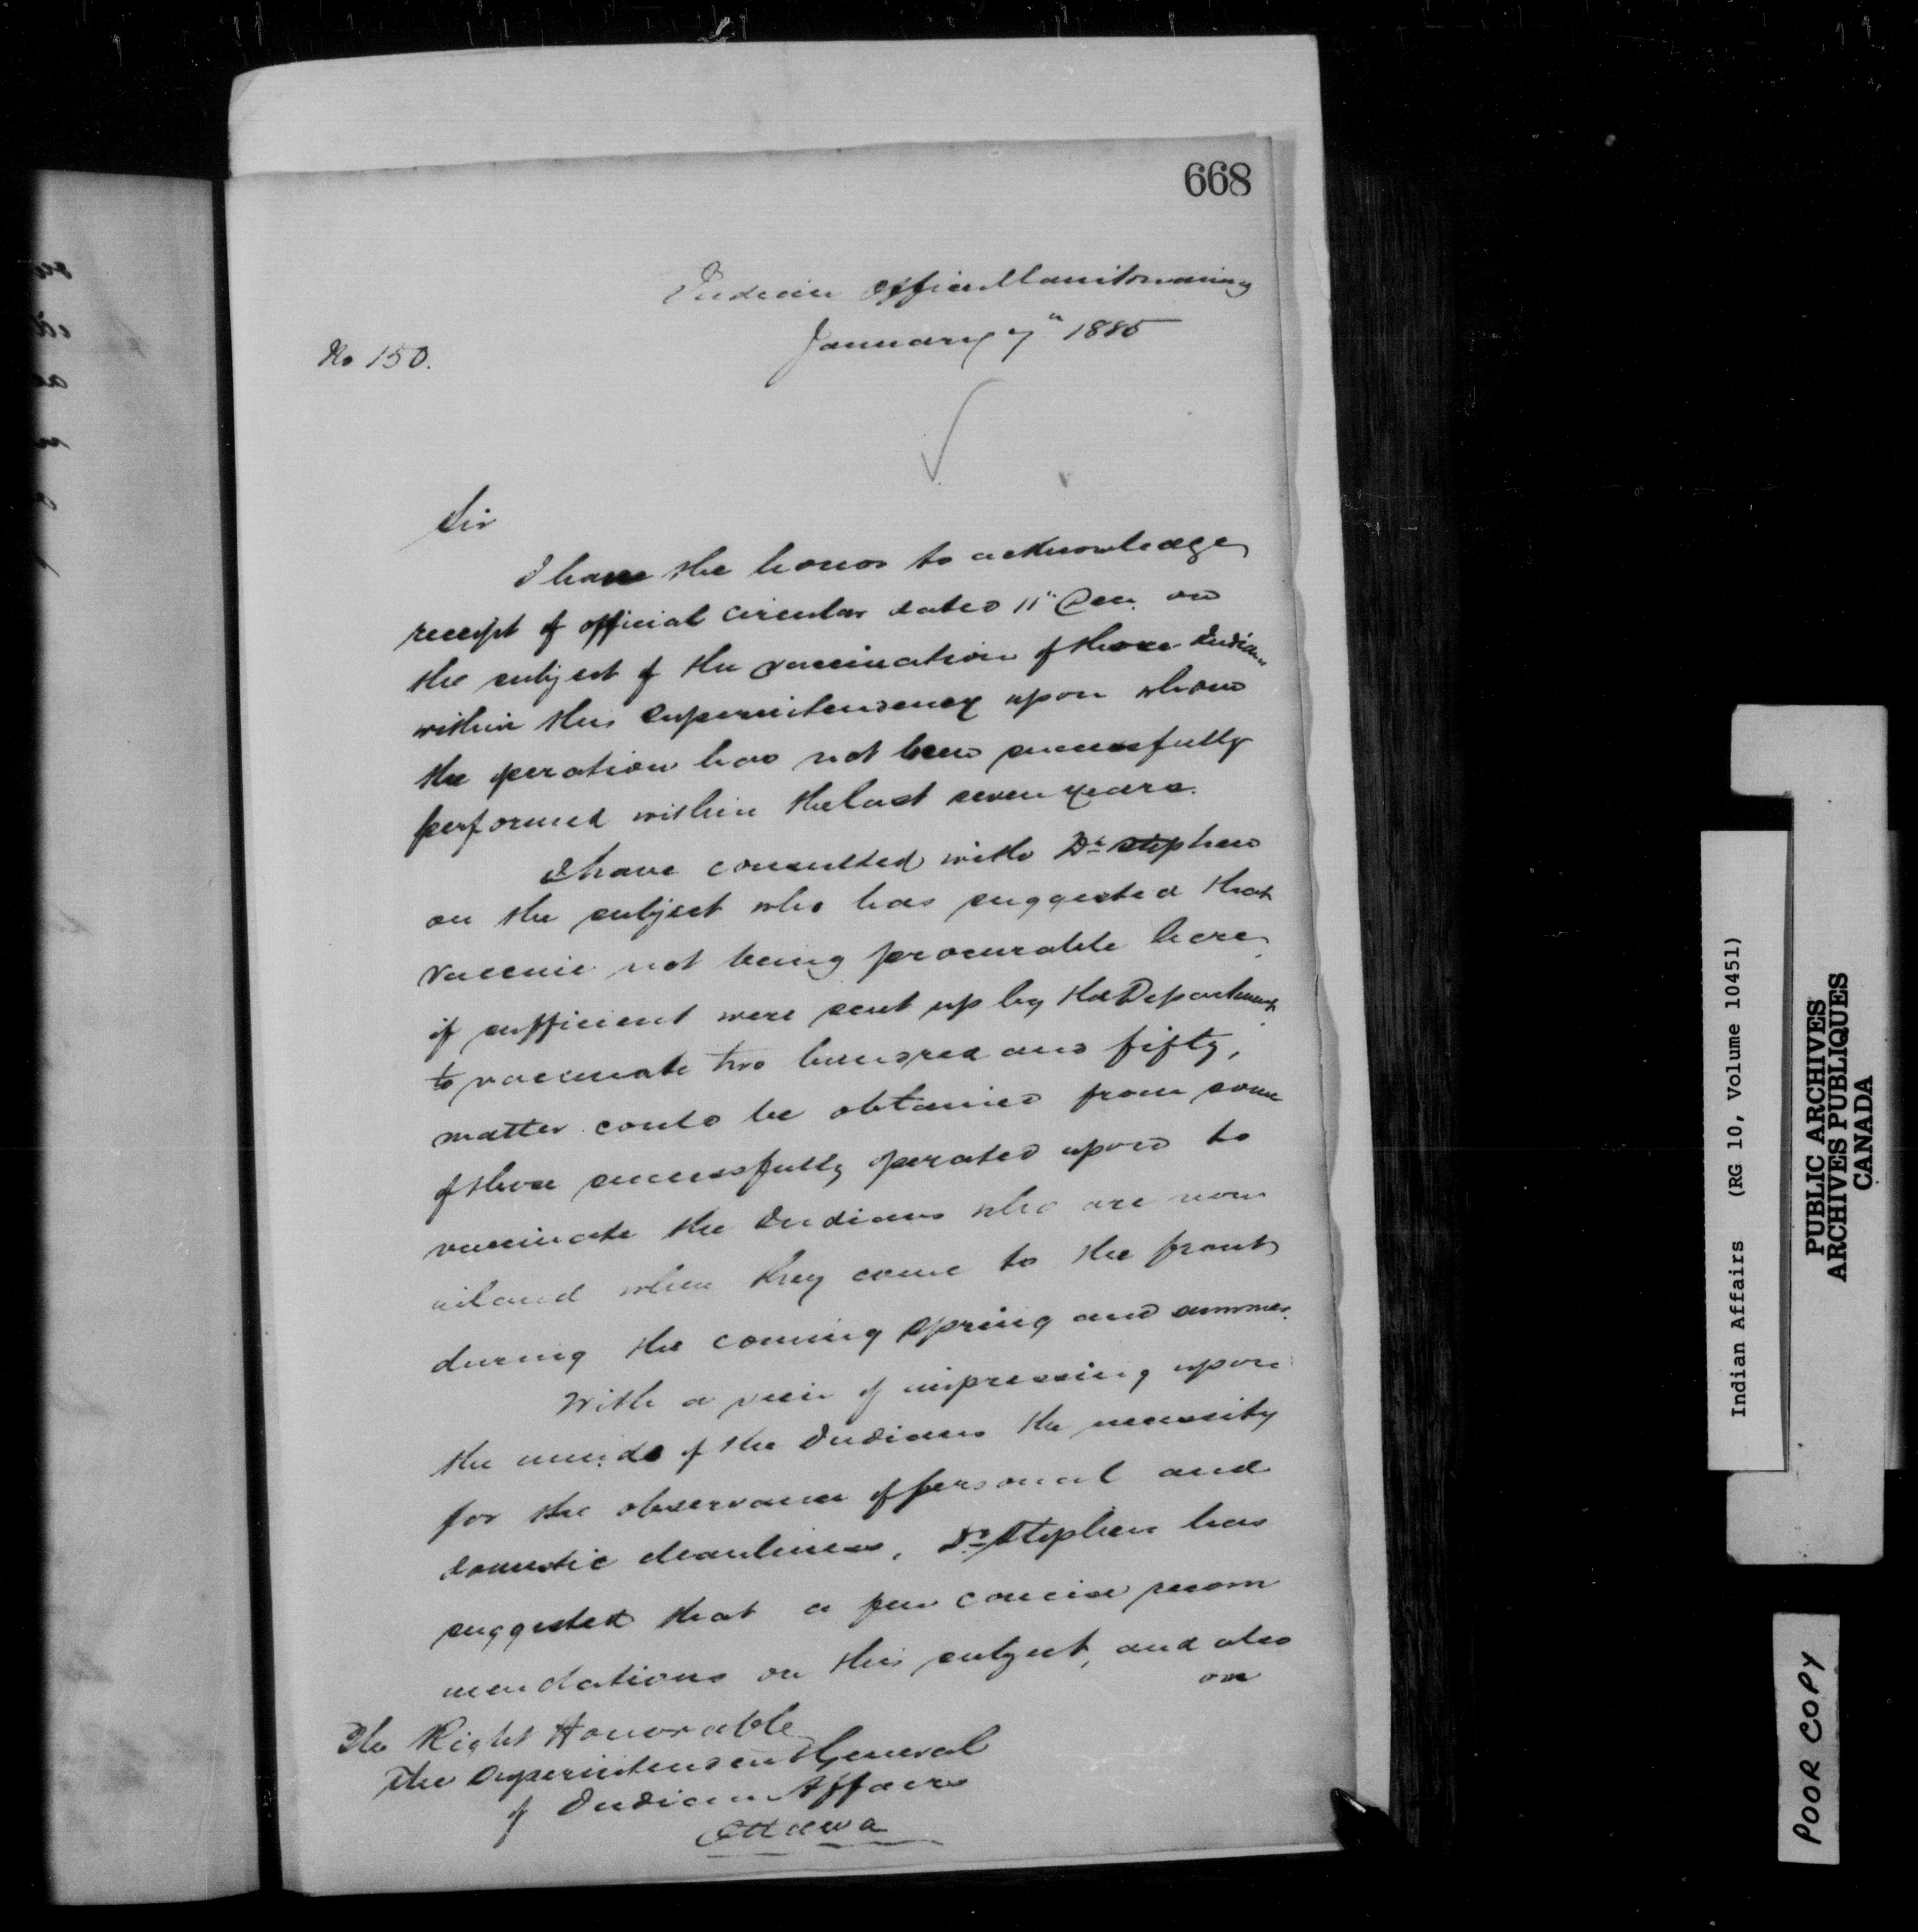 668
Indian Office Manitowaning
January 7th 1885
No 150.
Sir
I have the honor to acknowledge
receipt of official circular dated 11th Dec. on
the subject of the vaccination of those Indians
within this Superintendency upon whom
the operation has not been successfully
performed within the last seven years.
I have consulted with Dr Stephen
on the subject who has suggested that
vaccine not being procurable here,
if sufficient were sent up by the Department
to vaccinate two hundred and fifty,
matter could be obtained from some
of those successfully operated upon to
vaccinate the Indians who are now
inland when they come to the front
during the coming Spring and summer.
With a view of impressing upon
the minds of the Indians the necessity
for the observance of personal and
domestic cleanliness, Dr Stephen has
suggested that a few concise recom
mendations on this subject, and also
on
The Right Honorable
The Superintendent General
of Indian Affairs
Ottawa
Indian Affairs (RG 10, Volume 10451)
PUBLIC ARCHIVES
ARCHIVES PUBLIQUES
CANADA
POOR COPY